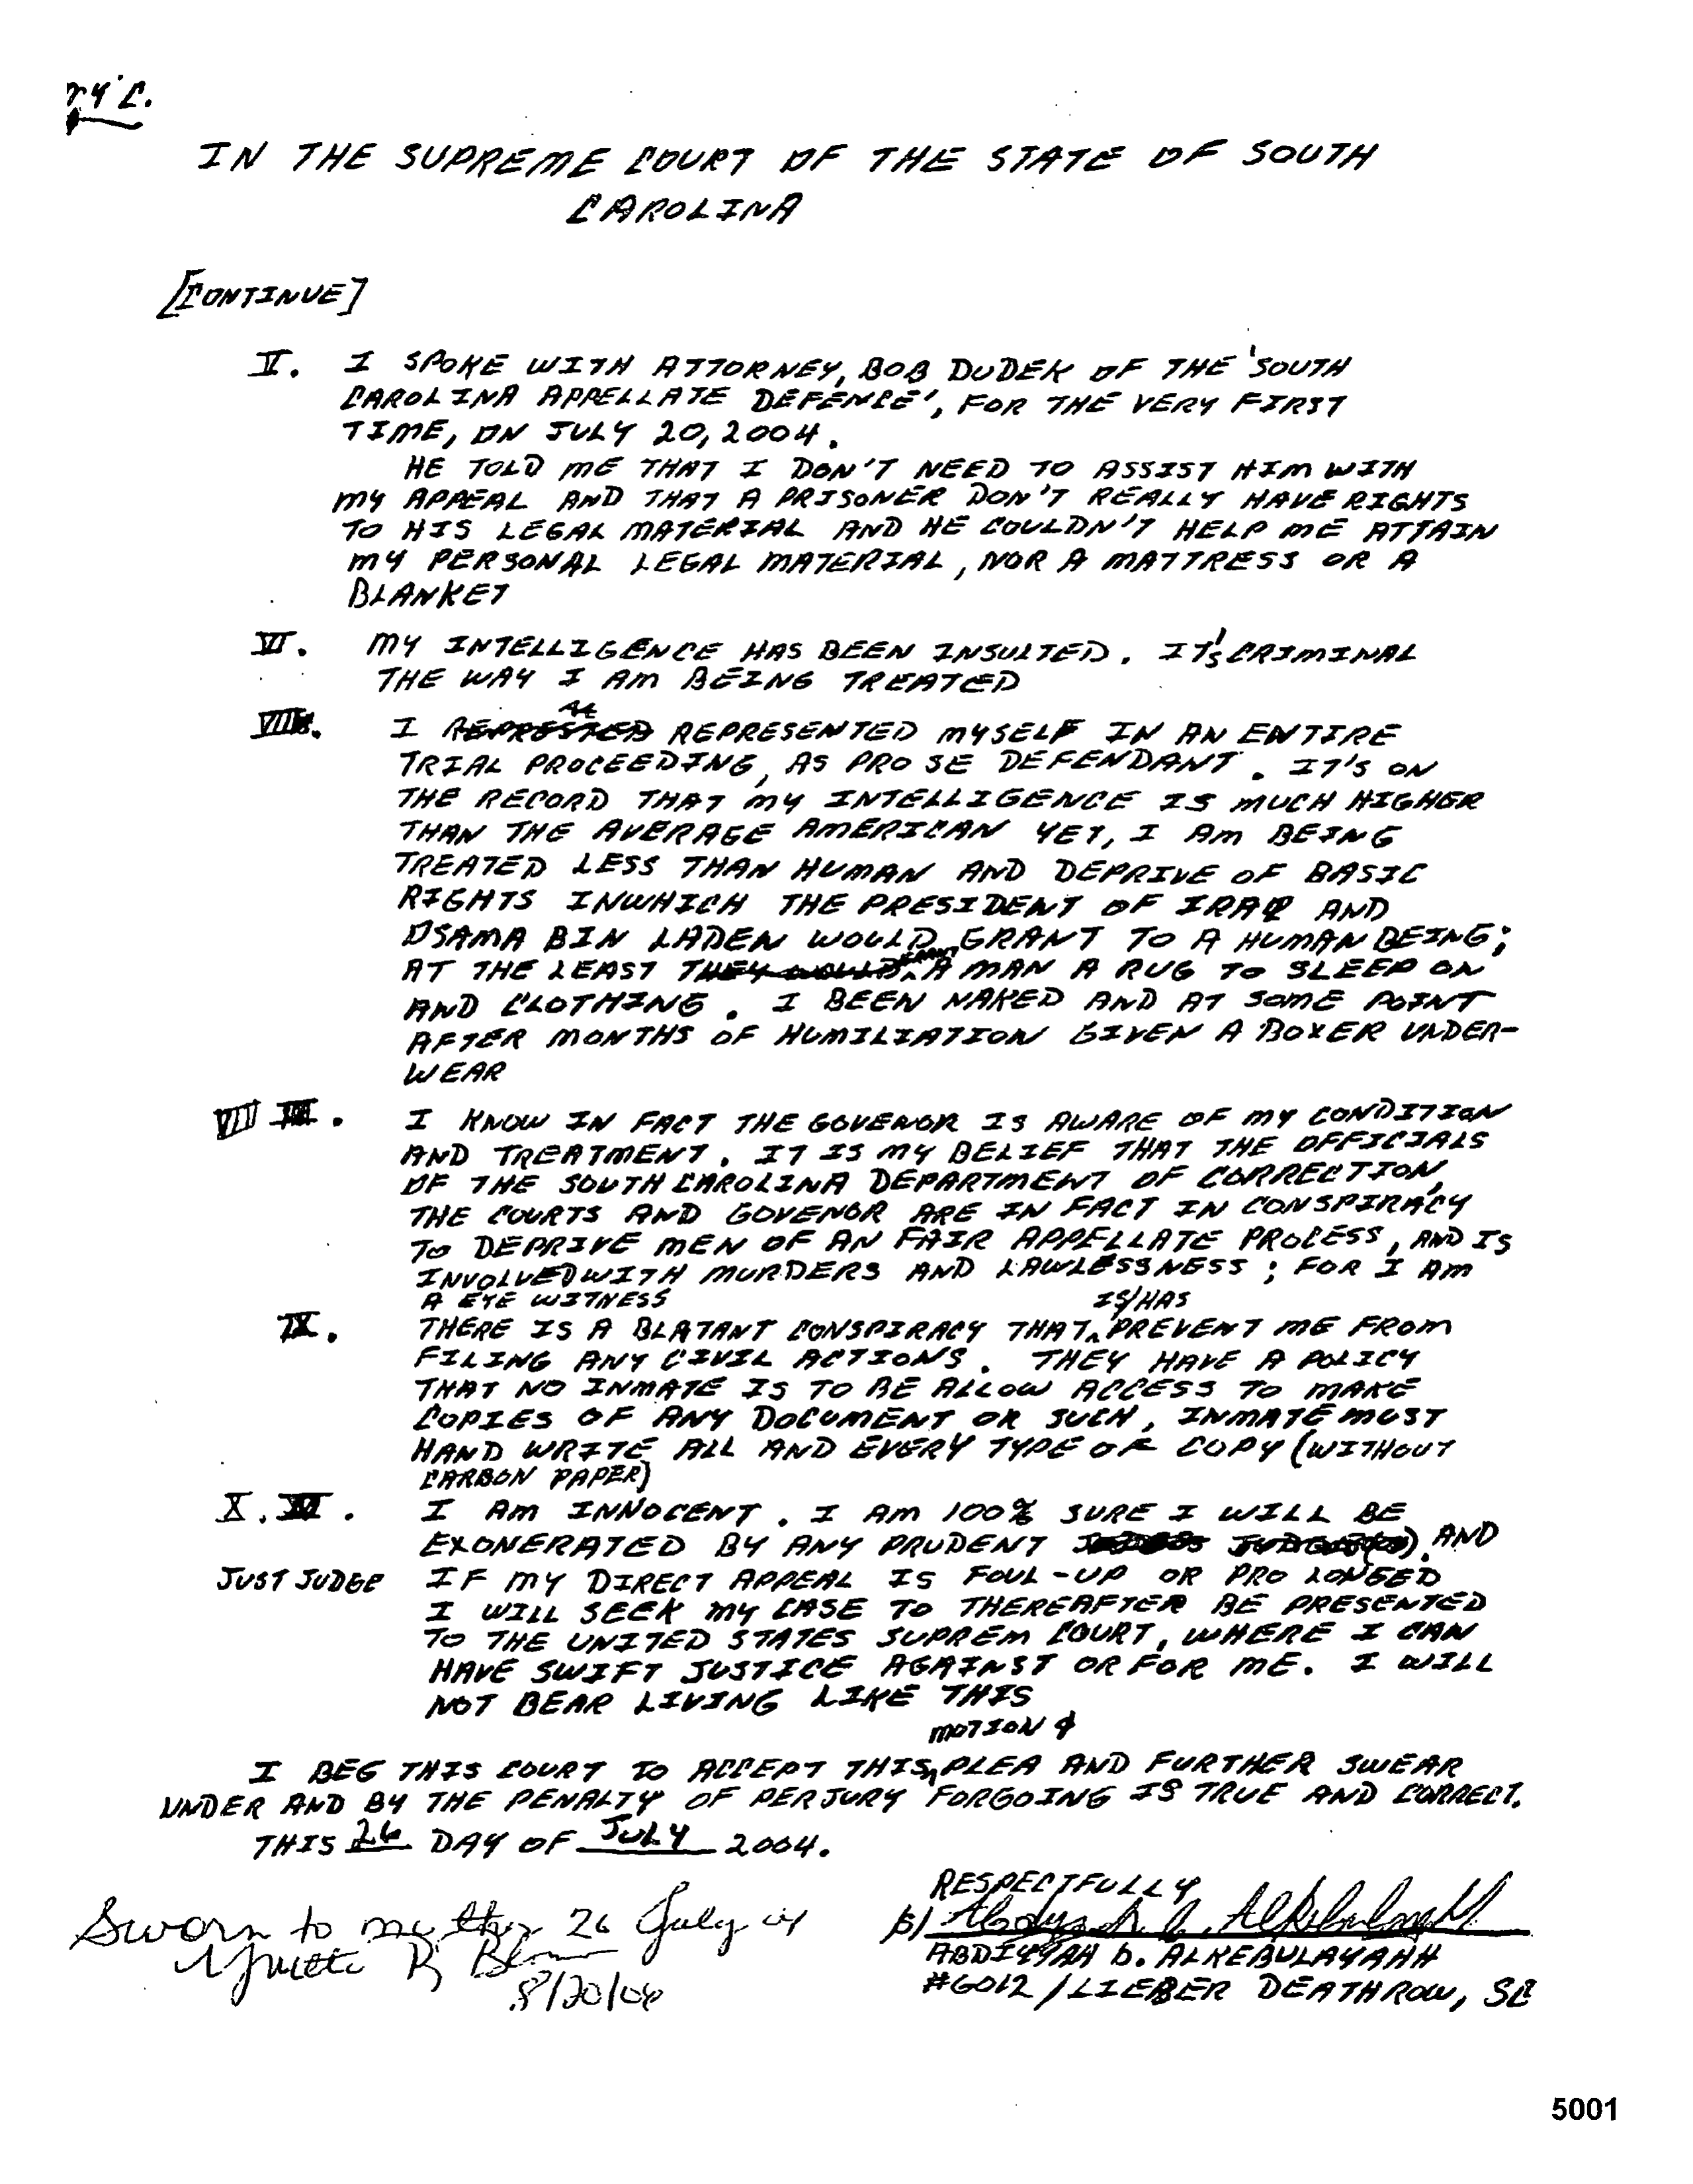 IN THE SUPREME COURT OF THE STATE OF SOUTH
CAROLINA
[CONTINUE]
V. I SPOKE WITH ATTORNEY, BOB DUDEK OF THE 'SOUTH
CAROLINA APPELLATE DEFENCE', FOR THE VERY FIRST
TIME, ON JULY 20, 2004.
HE TOLD ME THAT I DON'T NEED TO ASSIST HIM WITH
MY APPEAL AND THAT A PRISONER DON'T REALLY HAVE RIGHTS
TO HIS LEGAL MATERIAL AND HE COULDN'T HELP ME ATTAIN
MY PERSONAL LEGAL MATERIAL, NOR A MATTRESS OR A
BLANKET
VI. MY INTELLIGENCE HAS BEEN INSULTED. IT'S CRIMINAL
THE WAY I AM BEING TREATED
VII. I REPRESENTED MYSELF IN AN ENTIRE
TRIAL PROCEEDING, AS PRO SE DEFENDANT. IT'S ON
THE RECORD THAT MY INTELLIGENCE IS MUCH HIGHER
THAN THE AVERAGE AMERICAN YET, I AM BEING
TREATED LESS THAN HUMAN AND DEPRIVE OF BASIC
RIGHTS INWHICH THE PRESIDENT OF IRAQ AND
OSAMA BIN LADEN WOULD GRANT TO A HUMAN BEING;
AT THE LEAST THEY WOULD GRANT A MAN A RUG TO SLEEP ON
AND CLOTHING. I BEEN NAKED AND AT SOME POINT
AFTER MONTHS OF HUMILIATION GIVEN A BOXER UNDER-
WEAR
VIII. I KNOW IN FACT THE GOVENOR IS AWARE OF MY CONDITION
AND TREATMENT. IT IS MY BELIEF THAT THE OFFICIALS
OF THE SOUTH CAROLINA DEPARTMENT OF CORRECTION,
THE COURTS AND GOVENOR ARE IN FACT IN CONSPIRACY
TO DEPRIVE MEN OF AN FAIR APPELLATE PROCESS, AND IS
INVOLVED WITH MURDERS AND LAWLESSNESS; FOR I AM
A EYE WITNESS
IX. THERE IS A BLATANT CONSPIRACY THAT IS/HAS PREVENT ME FROM
FILING ANY CIVIL ACTIONS. THEY HAVE A POLICY
THAT NO INMATE IS TO BE ALLOW ACCESS TO MAKE
COPIES OF ANY DOCUMENT OR SUCH, INMATE MUST
HAND WRITE ALL AND EVERY TYPE OF COPY (WITHOUT
CARBON PAPER)
X. I AM INNOCENT. I AM 100% SURE I WILL BE
EXONERATED BY ANY PRUDENT AND
JUST JUDGE IF MY DIRECT APPEAL IS FOUL-UP OR PRO LONGED
I WILL SEEK MY CASE TO THEREAFTER BE PRESENTED
TO THE UNITED STATES SUPREM COURT, WHERE I CAN
HAVE SWIFT JUSTICE AGAINST OR FOR ME. I WILL
NOT BEAR LIVING LIKE THIS
I BEG THIS COURT TO ACCEPT THIS MOTION & PLEA AND FURTHER SWEAR
UNDER AND BY THE PENALTY OF PERJURY FORGOING IS TRUE AND CORRECT.
THIS 26 DAY OF JULY 2004.
RESPECTFULLY
Sworn to me this 26 July 04
ABDIYYAH b. ALKEBULAYAHH
8/20/06
#6012 / LIEBER DEATHROW, SC
5001